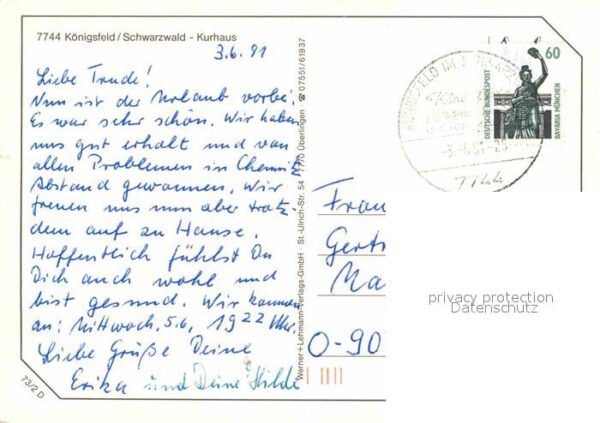 7744 Königsfeld/Schwarzwald - Kurhaus
3.6.91
Liebe Trude!
Nun ist der Urlaub vorbei.
Es war sehr schön. Wir haben
uns gut erholt und von
allen Problemen in Chemnitz
Abstand gewonnen. Wir
freuen uns nun aber trotz-
dem auf zu Hause.
Hoffentlich fühlst Du
Dich auch wohl und
bist gesund. Wir kommen
an: Mittwoch, 5.6., 1922 Uhr.
Liebe Grüße Deine
Erika und Deine Hilde
73/2 D
Werner+Lehmann-Verlags-GmbH · St.-Ulrich-Str. 54 · 7770 Überlingen ☎ 07551/61937
KÖNIGSFELD IM SCHWARZ
7744
60
DEUTSCHE BUNDESPOST
BAVARIA MÜNCHEN
Frau
Gert
O-90
privacy protection
Datenschutz